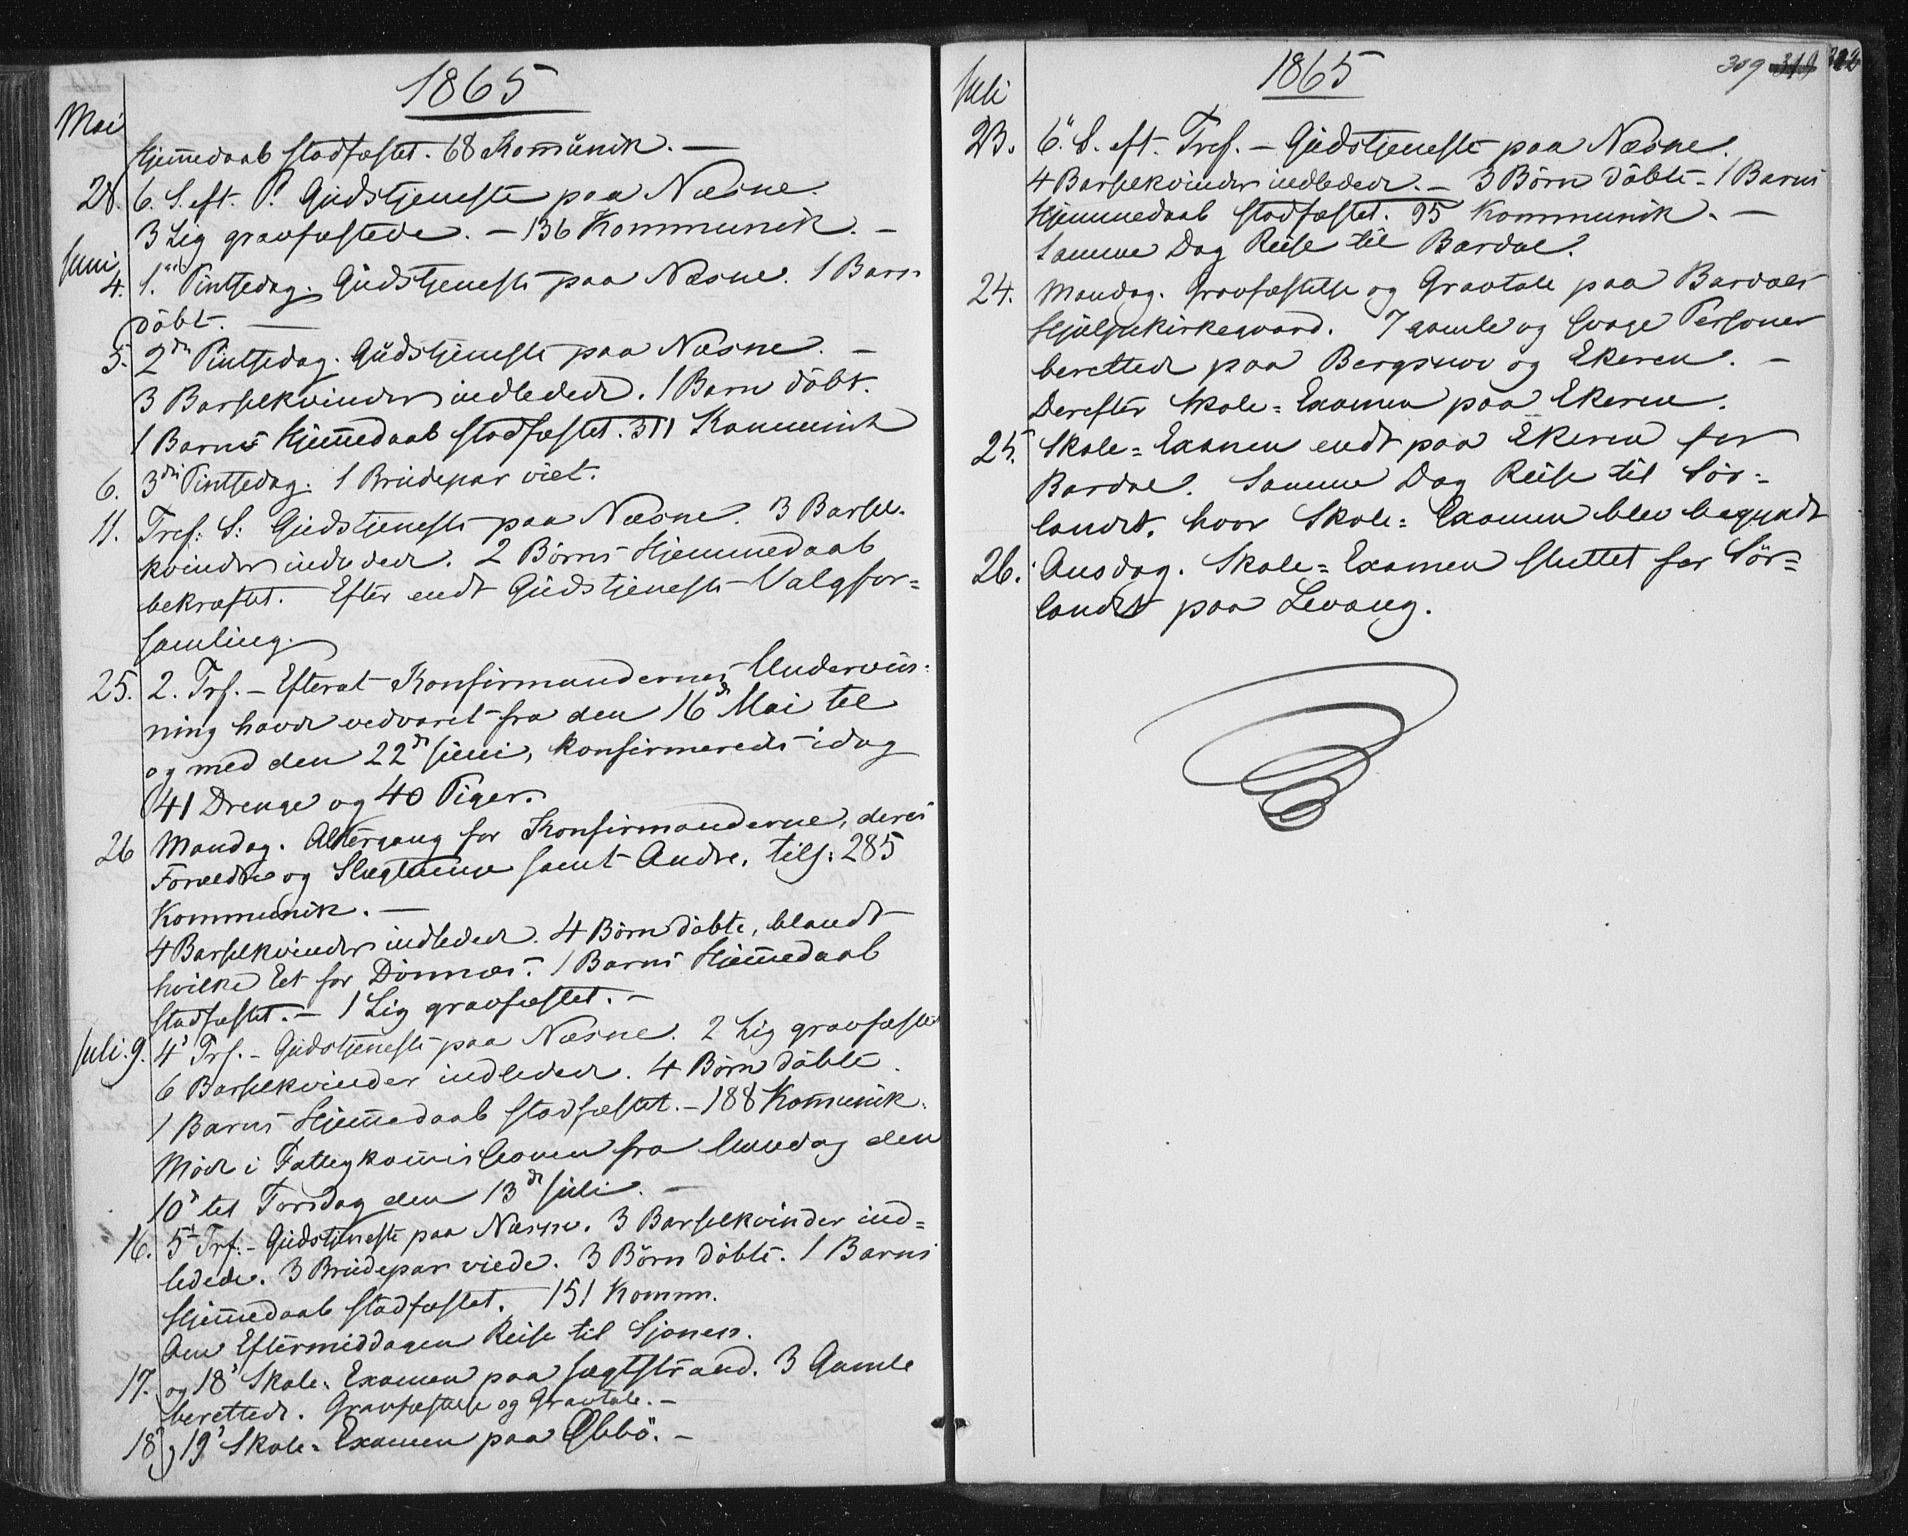 1865
Mai
Hjem̅edaab stadfæstet. 68 Kom̅unik. —
28. 6. S. eft. P. Gudstjeneste paa Næsne.
3 Lig gravfæstede. — 136 Kommunik. —
Juni
4. 1ste Pintsedag. Gudstjeneste paa Næsne. 1 Barn
döbt. —
5. 2den Pintsedag. Gudstjeneste paa Næsne. —
3 Barselkvinder indledede. 1 Barn döbt.
1 Barns Hjem̅edaab stadfæstet. 311 Kom̅unik
6. 3die Pintsedag. 1 Brudepar viet.
11. Tref: S: Gudstjeneste paa Næsne. 3 Barsel-
kvinder indledede. 2 Börns Hjemmedaab
bekræftet. Efter endt Gudstjeneste Valgfor=
samling.
25. 2. Trf. — Efterat Konfirmandernes Underviis-
ning havde vedvaret fra den 16de Mai til
og med den 22de Juni, konfirmeredes idag
41 Drenge og 40 Piger.
26 Mandag. Altergang for Konfirmanderne, deres
Forældre og Slægtninge samt Andre, tils: 285
Kommunik. —
4 Barselkvinder indledede. 4 Börn döbte, blandt
hvilke Et for Dönnæs. 1 Barns Hjem̅edaab
stadfæstet. — 1 Lig gravfæstet. —
Juli 9. 4de Trf. — Gudstjeneste paa Næsne. 2 Lig gravfæsted
6 Barselkvinder indledede. 4 Börn döbte.
1 Barns Hjem̅edaab stadfæstet. — 188 Kom̅unik.
Möde i Fattigkom̅issionen fra Mandag den
10de til Torsdag den 13de Juli. —
16. 5te Trf. — Gudstjeneste paa Næsne. 3 Barselkvinder ind=
ledede. 3 Brudepar viede. 3 Börn döbte. 1 Barns
Hjem̅edaab stadfæstet. 151 Komm.
Om Eftermiddagen Reise til Sjonen.
17. og 18de Skole-Examen paa Sægtstrand. 3 Gamle
berettede. Gravfæstelse og Gravtale. —
18de, 19de Skole-Examen paa Øbbö. —
1865
309 319 322
Juli
23. 6te S. eft. Tref. — Gudstjeneste paa Næsne.
4 Barselkvinder indledede. — 3 Börn döbte — 1 Barns
Hjemmedaab stadfæstet. 95 Kommunik. —
Samme Dag Reise til Bardal.
24. Mandag. Gravfæstelse og Gravtale paa Bardals
Hjælpekirkegaard. 7 gamle og svage Personer
berettede paa Bergsnov og Ekeren. —
Derefter Skole=Examen paa Ekeren.
25. Skole=Examen endt paa Ekeren for
Bardal. Samme Dag Reise til Sör=
landet, hvor Skole=Examen blev begyndt
26. Onsdag. Skole=Examen sluttet for Sör=
landet paa Levang.